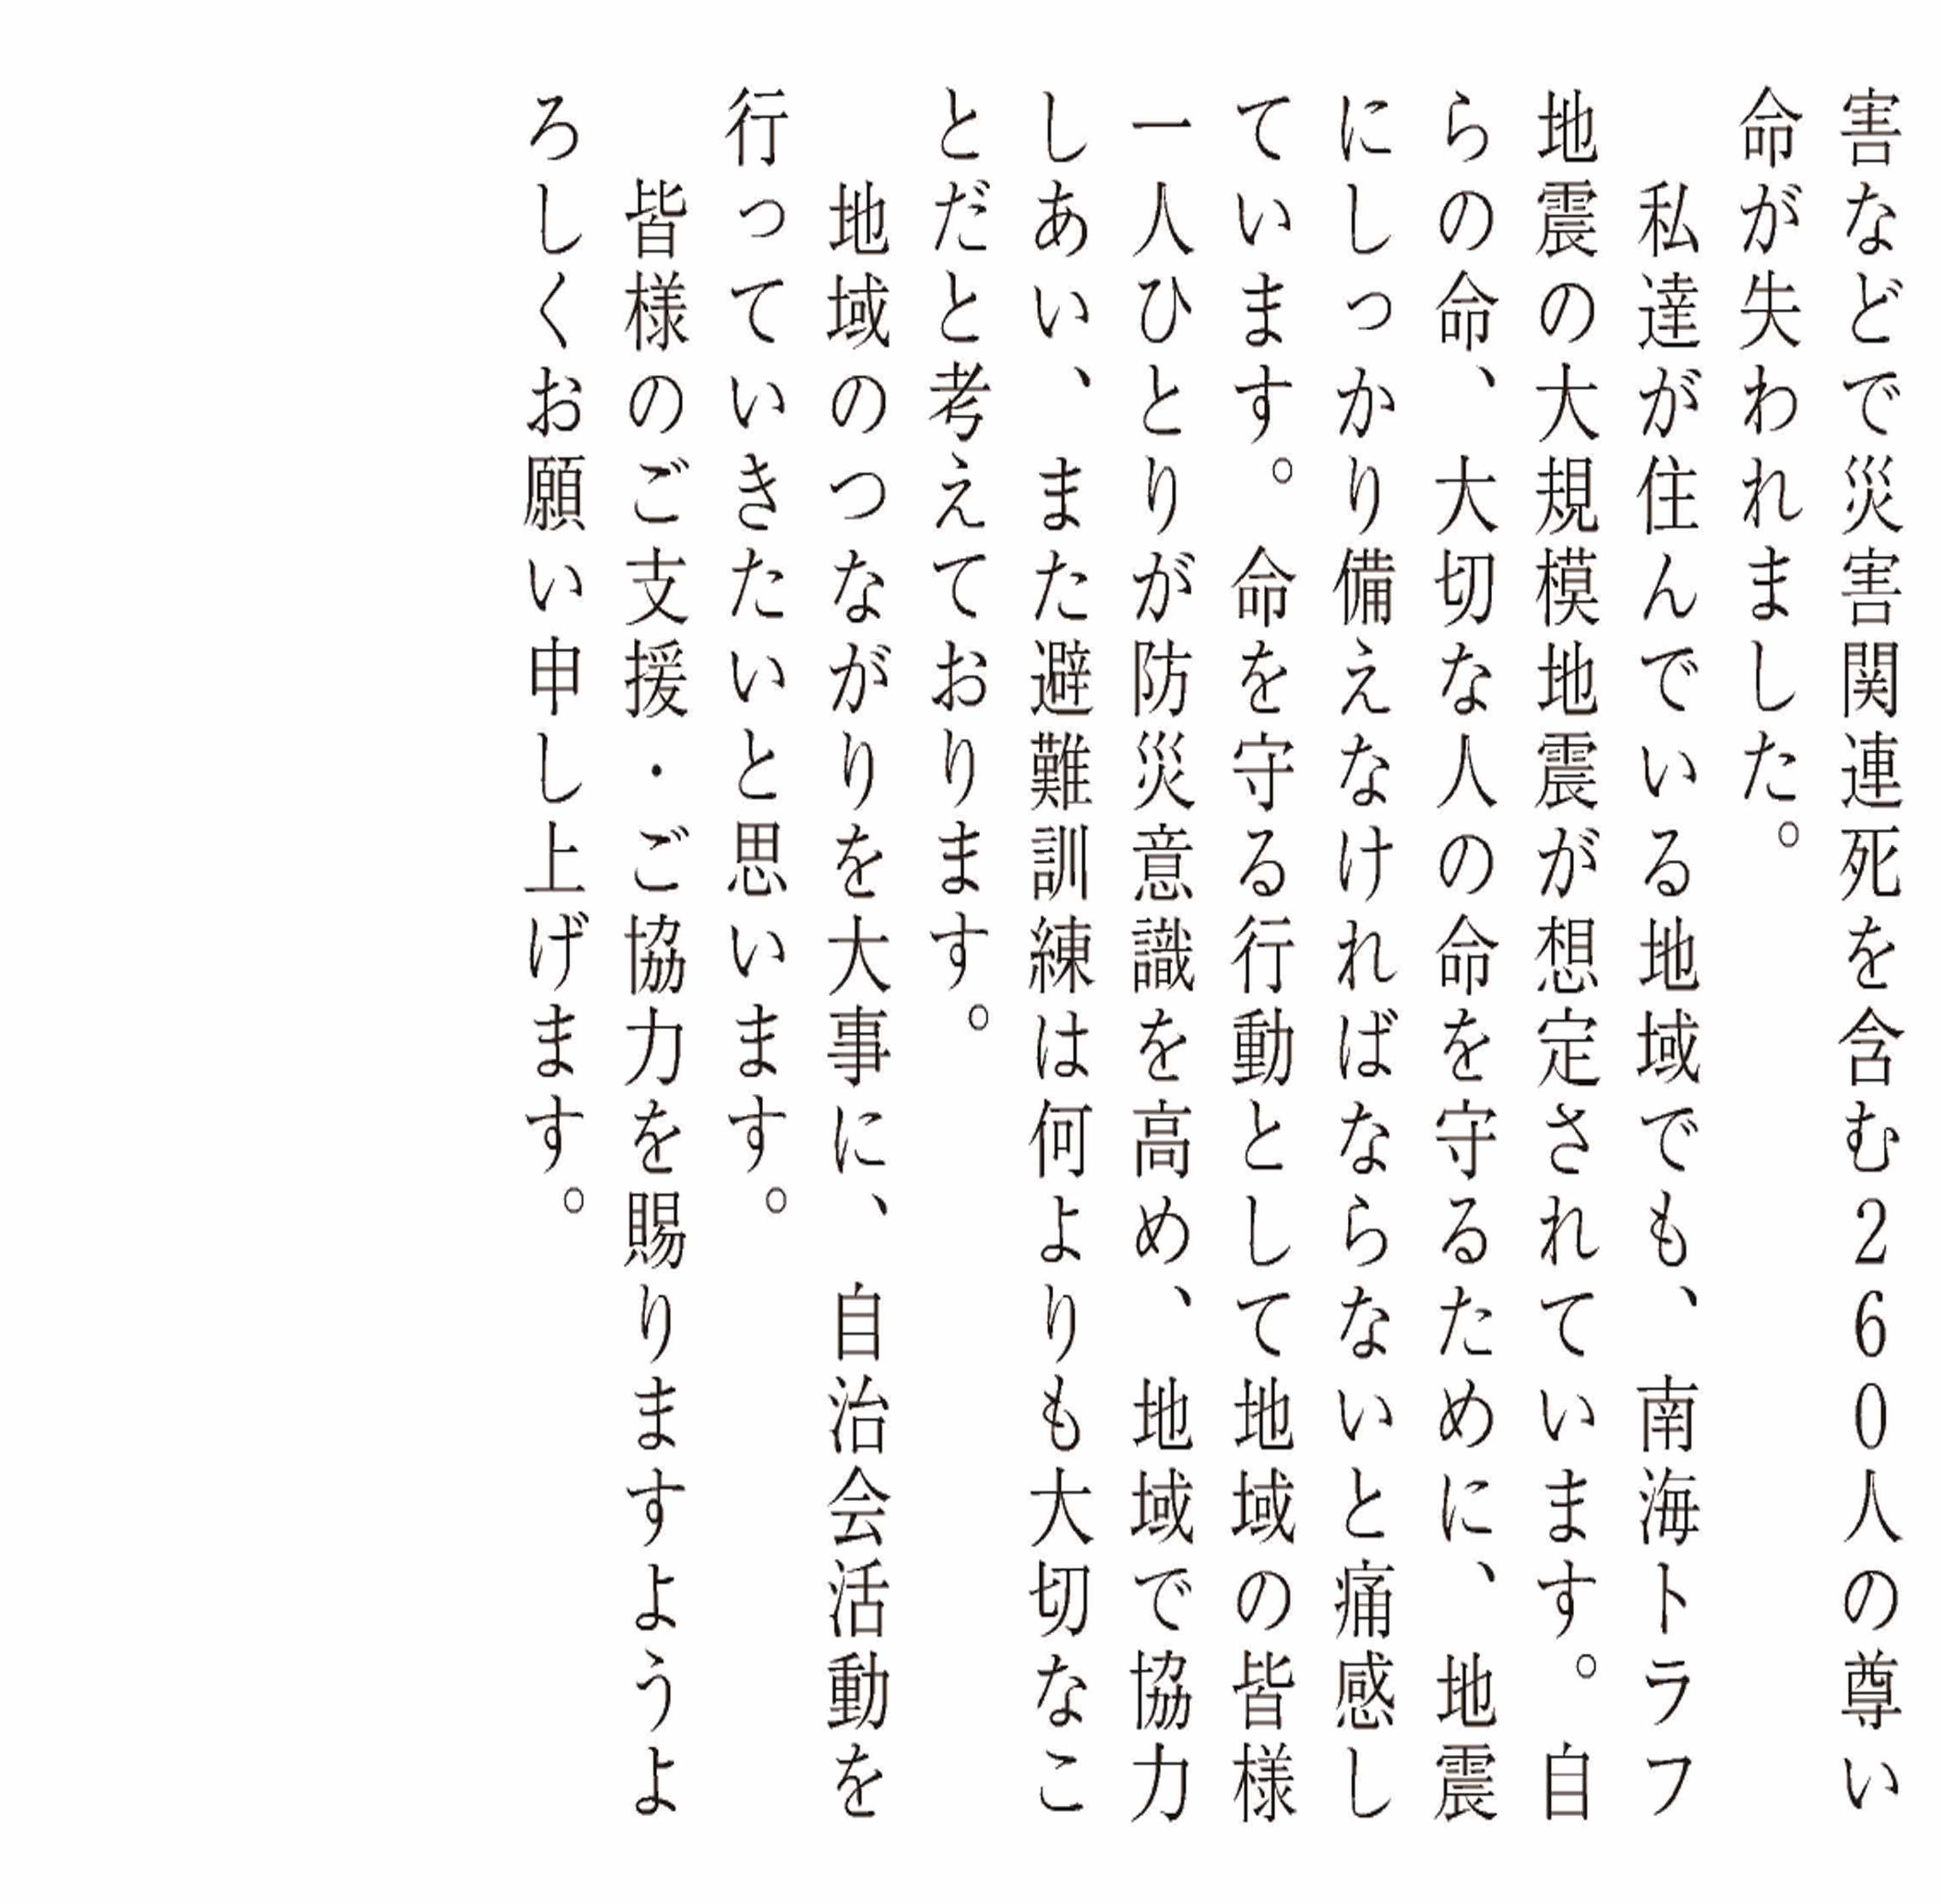 害などで災害関連死を含む260人の尊い
命が失われました。
　私達が住んでいる地域でも、南海トラフ
地震の大規模地震が想定されています。自
らの命、大切な人の命を守るために、地震
にしっかり備えなければならないと痛感し
ています。命を守る行動として地域の皆様
一人ひとりが防災意識を高め、地域で協力
しあい、また避難訓練は何よりも大切なこ
とだと考えております。
　地域のつながりを大事に、自治会活動を
行っていきたいと思います。
　皆様のご支援・ご協力を賜りますようよ
ろしくお願い申し上げます。